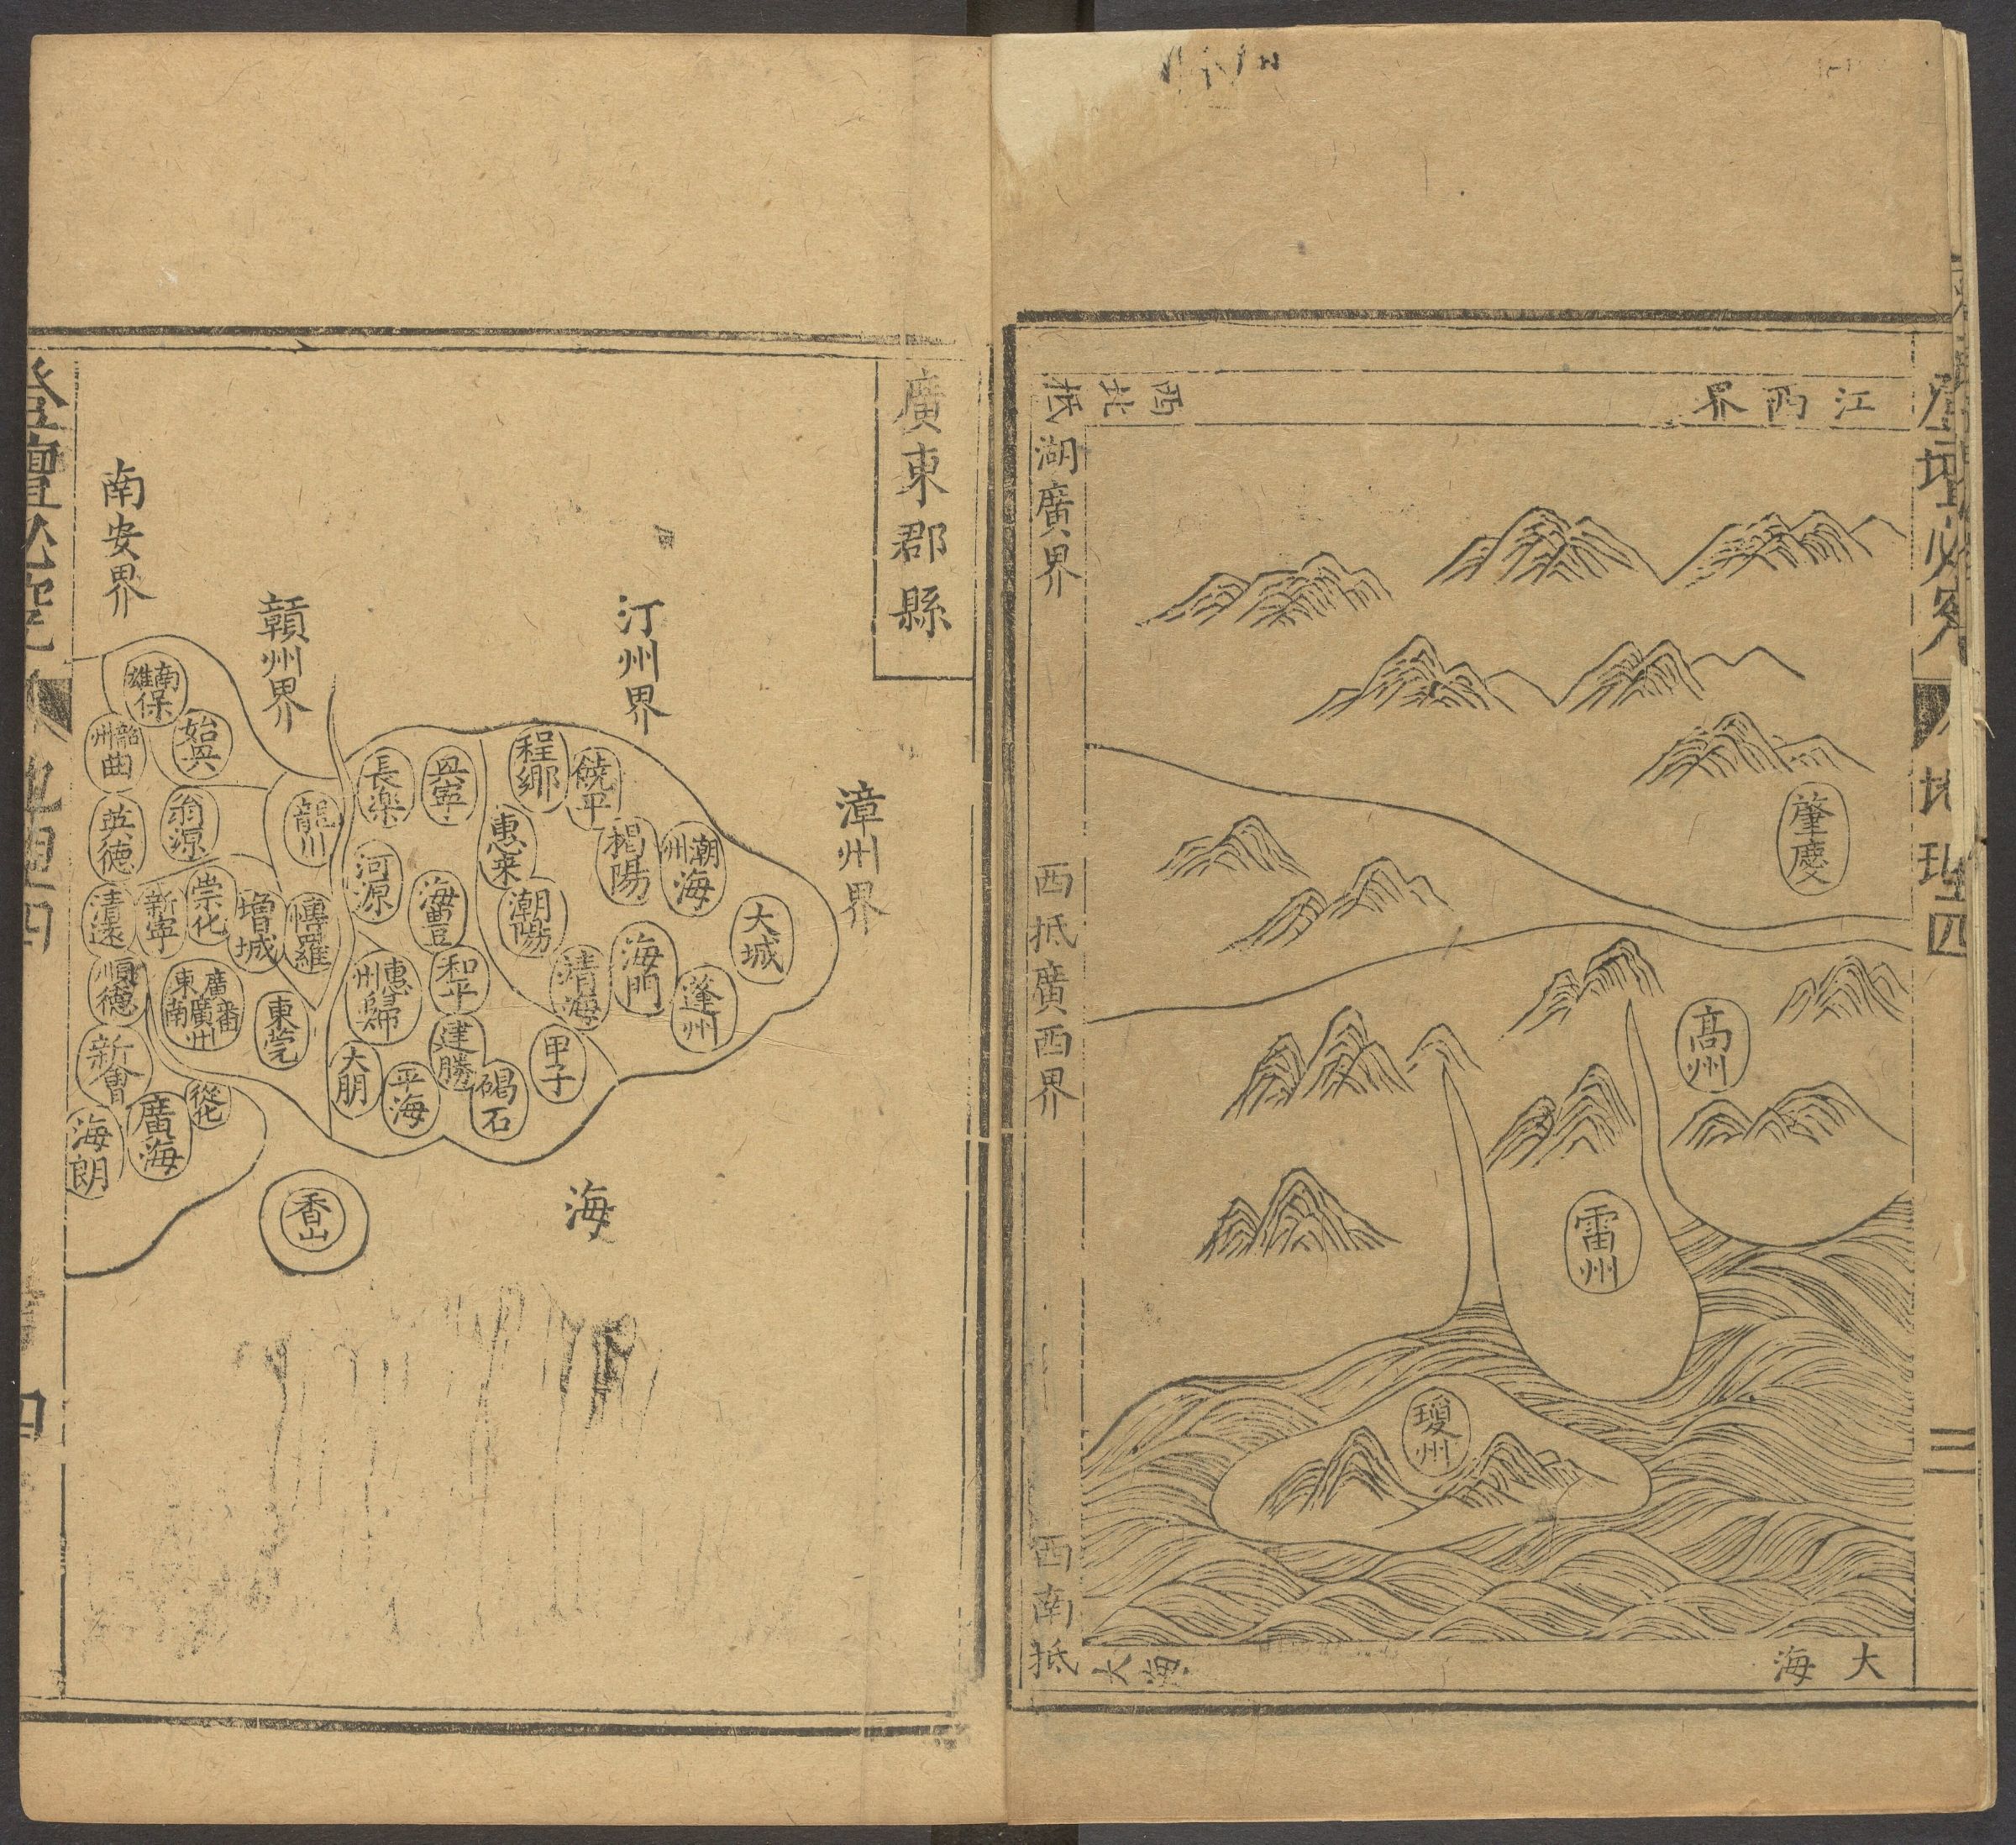 登壇必究
地理四
三
江西界
西北抵
湖廣界
西抵廣西界
西南抵
大海
大海
肇慶
高州
雷州
瓊州
廣東郡縣
漳州界
汀州界
贛州界
南安界
海
大城
潮州海
蓬州
饒平
揭陽
海門
程鄉
惠来
潮陽
靖海
甲子
興寧
海豐
和平
建勝
碣石
長楽
河源
惠州歸
平海
大朋
龍川
慱羅
增城
東莞
香山
始興
翁源
崇化
廣東南番廣州
從化
南雄保
新寧
廣海
韶州曲
英德
清遠
順德
新會
海朗
登壇必究
地理四
四